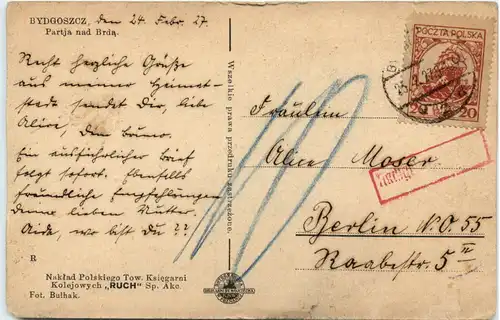 BYDGOSZCZ, den 24. Febr. 27.
Partja nad Brdą.
Recht herzliche Grüße
aus meiner Heimat-
stadt sendet Dir, liebe
Alice, Dein Bruno.
Ein ausführlicher Brief
folgt sofort. Ebenfalls
freundliche Empfehlungen
Deiner lieben Mutter.
wo bist Du ??
R
Nakład Polskiego Tow. Księgarni
Kolejowych „RUCH” Sp. Akc.
Fot. Bułhak.
Wszelkie prawa przedruku zastrzeżone.
POCZTA POLSKA
20 20
Fräulein
Alice Moser
Berlin N.O. 55
Raabestr. 5 II